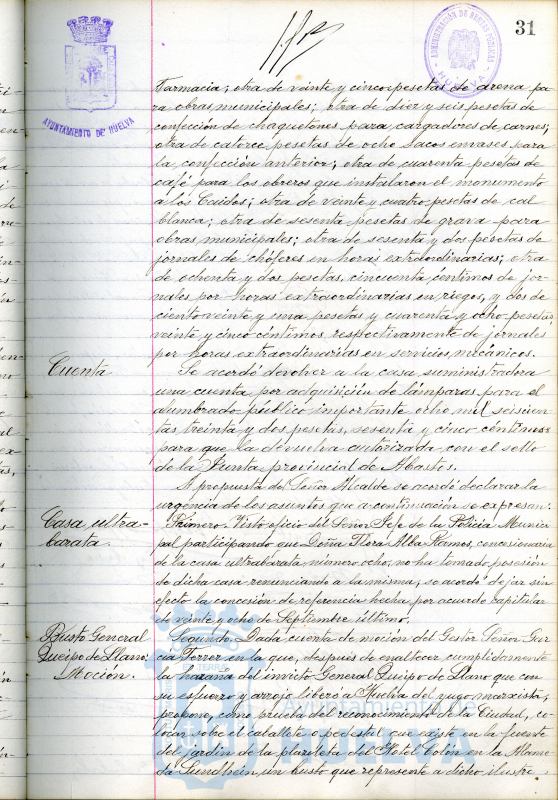 31
ADMINISTRACIÓN DE RENTAS PÚBLICAS
HUELVA
AYUNTAMIENTO DE HUELVA
Farmacia; otra de veinte y cinco pesetas de arena pa-
ra obras municipales; otra de diez y seis pesetas de
confección de chaquetones para cargadores de carnes;
otra de catorce pesetas de ocho sacos envases para
la confección anterior; otra de cuarenta pesetas de
café para los obreros que instalaron el monumento
a los Caidos; otra de veinte y cuatro pesetas de cal
blanca; otra de sesenta pesetas de grava para
obras municipales; otra de sesenta y dos pesetas de
jornales de chóferes en horas extraordinarias; otra
de ochenta y dos pesetas, cincuenta céntimos de jor-
nales por horas extraordinarias en riegos, y dos de
ciento veinte y una pesetas y cuarenta y ocho pesetas
veinte y cinco céntimos respectivamente de jornales
por horas extraordinarias en servicios mecánicos.
Cuenta
Se acordó devolver a la casa suministradora
una cuenta por adquisición de lámparas para el
alumbrado público importante ocho mil seiscien
tas treinta y dos pesetas, sesenta y cinco céntimos
para que la devuelva autorizada con el sello
de la Junta provincial de Abastos.
A propuesta del Señor Alcalde se acordó declarar la
urgencia de los asuntos que a continuación se expresan:
Casa ultra-
barata.
Primero. Visto oficio del Señor Jefe de la Policia Munici
pal participando que Doña Flora Alba Ramos, concesionaria
de la casa ultrabarata número ocho, no ha tomado posesión
de dicha casa renunciando a la misma, se acordó dejar sin
efecto la concesión de referencia hecha por acuerdo capitular
de veinte y ocho de Septiembre último.
Busto General
Queipo de Llano:
Moción.
Segundo. Dada cuenta de moción del Gestor Señor Gar
cia Ferrer en la que, después de enaltecer cumplidamente
la hazaña del invicto General Queipo de Llano que con
su esfuerzo y arrojo liberó a Huelva del yugo marxista,
propone, como prueba del reconocimiento de la Ciudad, co-
locar sobre el caballete o pedestal que existe en la fuente
del jardin de la plazoleta del Hotel Colón en la Alame
da Sundheim un busto que represente a dicho ilustre
Ayuntamiento de
HUELVA